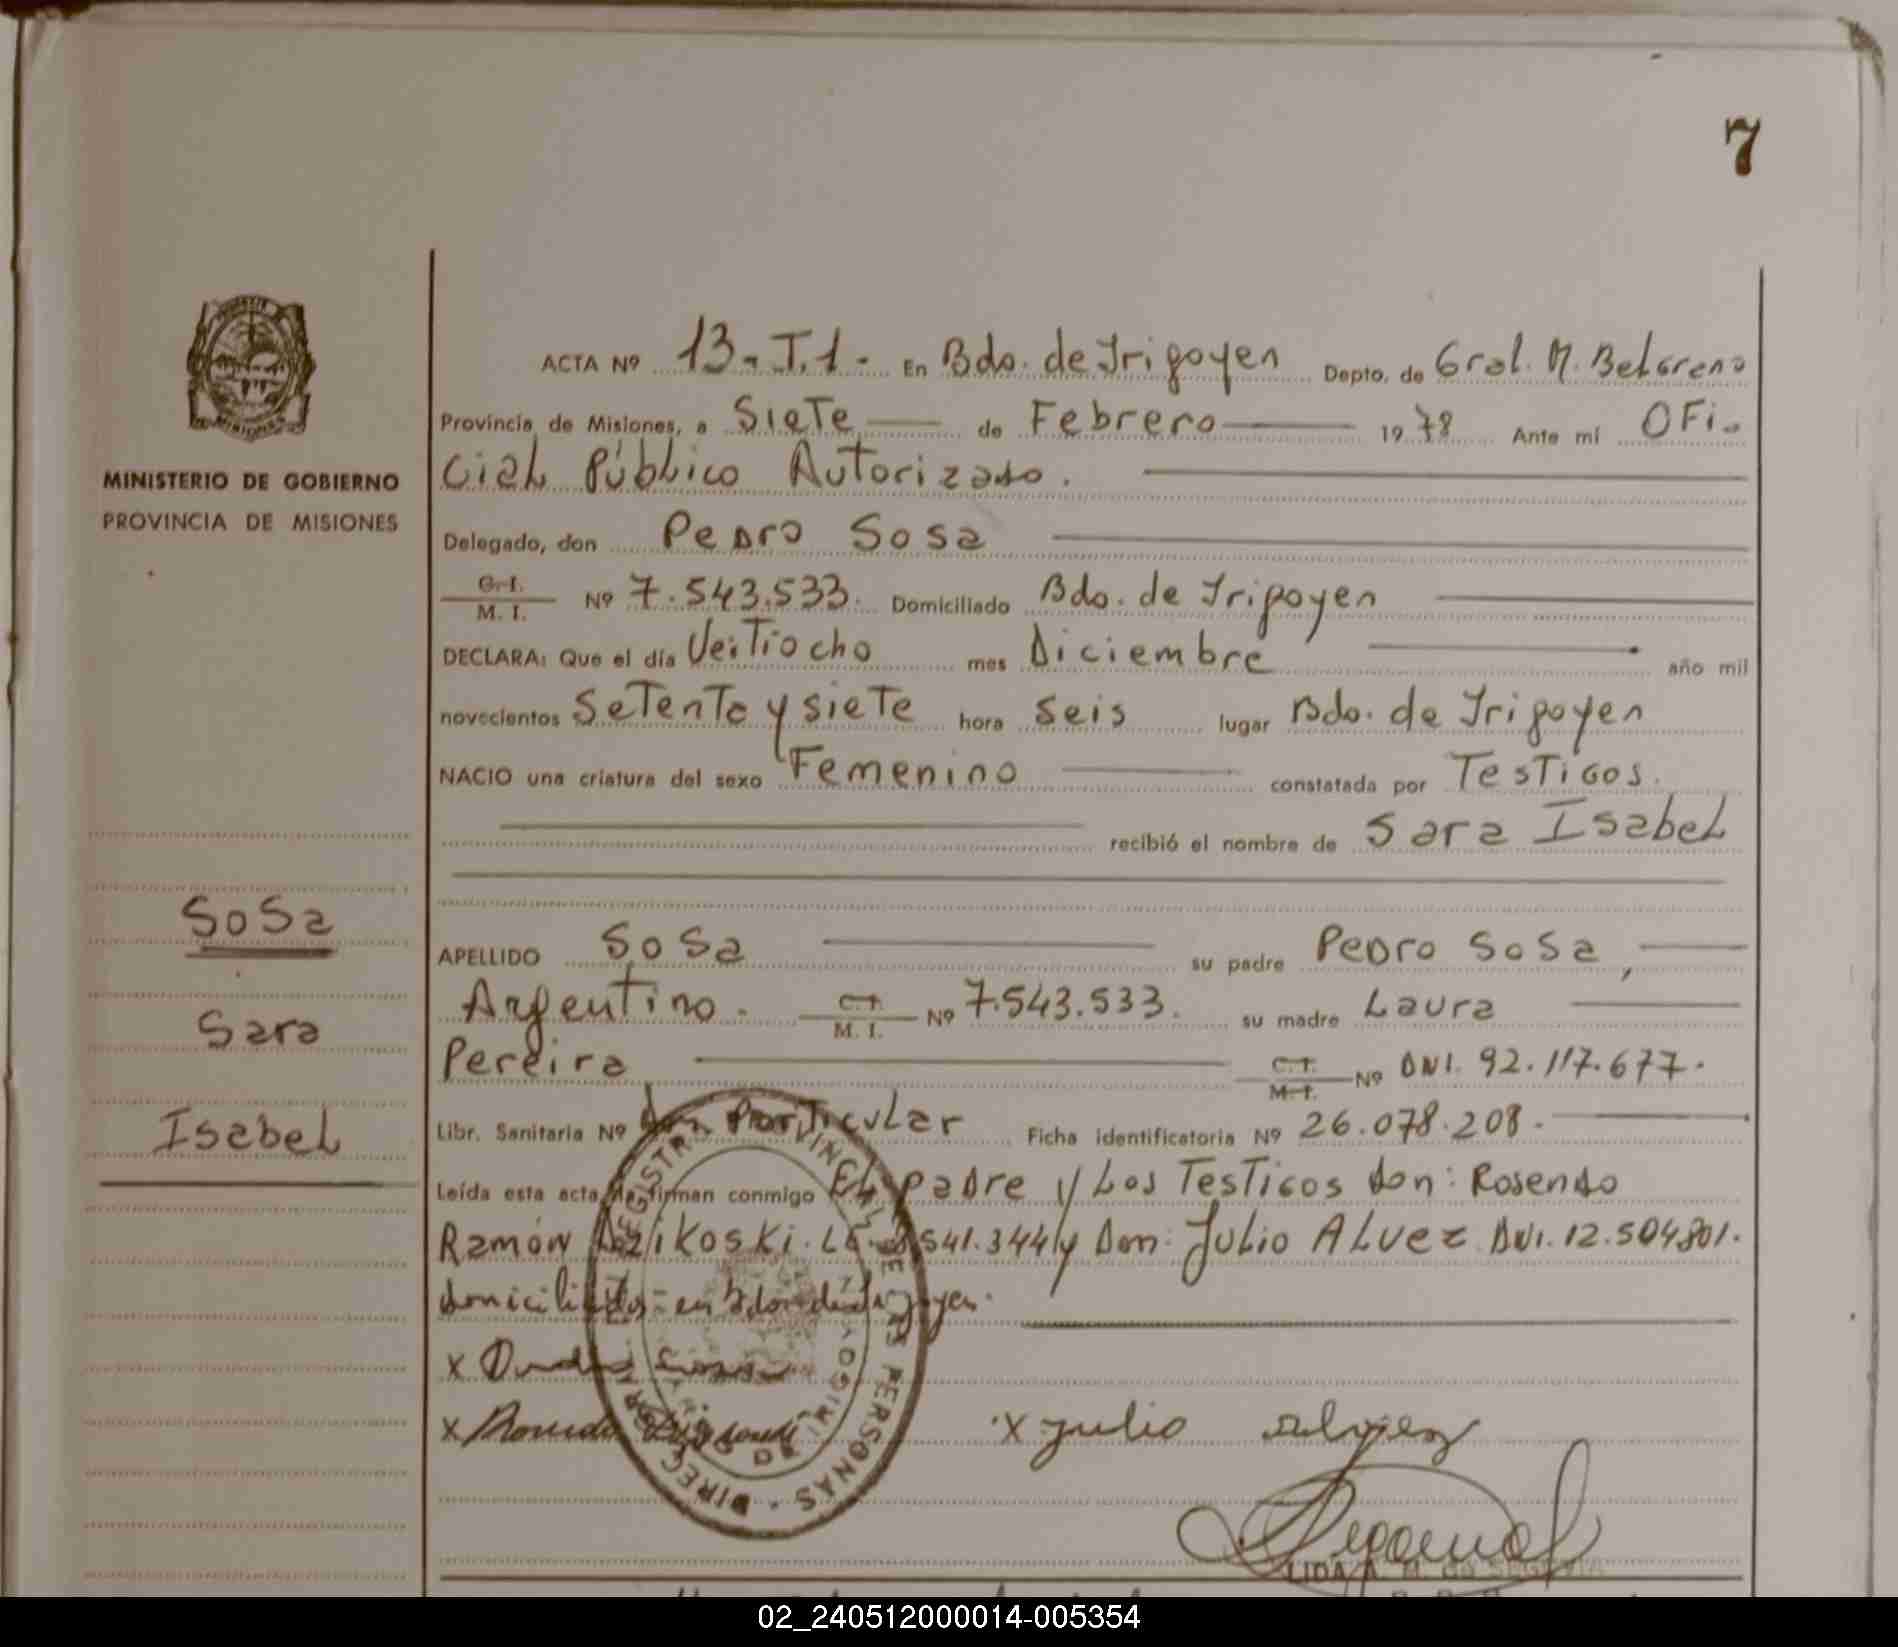 7
ACTA Nº 13-T.1- En Bdo. de Irigoyen Depto. de Gral. M. Belgrano
Provincia de Misiones, a Siete de Febrero 1978 Ante mí OFi-
cial Público Autorizado.
MINISTERIO DE GOBIERNO
PROVINCIA DE MISIONES
Delegado, don Pedro Sosa
C.I. M. I. Nº 7.543.533. Domiciliado Bdo. de Irigoyen
DECLARA: Que el día Veitiocho mes Diciembre año mil
novecientos Setenta y siete hora seis lugar Bdo. de Irigoyen
NACIO una criatura del sexo Femenino constatada por Testigos.
recibió el nombre de Sara Isabel
Sosa
Sara
Isabel
APELLIDO Sosa su padre Pedro Sosa,
Argentino. C.I. M. I. Nº 7.543.533. su madre Laura
Pereira C.I. M.I. Nº DNI. 92.117.677.
Libr. Sanitaria Nº Particular Ficha identificatoria Nº 26.078.208.
Leída esta acta la firman conmigo El padre y Los Testigos don: Rosendo
Ramón 541.344 y Don: Julio ALvez DNI. 12.504801.
domiciliados en Bdo. de Irigoyen.
x
x x julio alvez
DIREC REGISTR PROVINCIAL DE LAS PERSONAS
LIDA A. M. de SEGOVIA
02_240512000014-005354